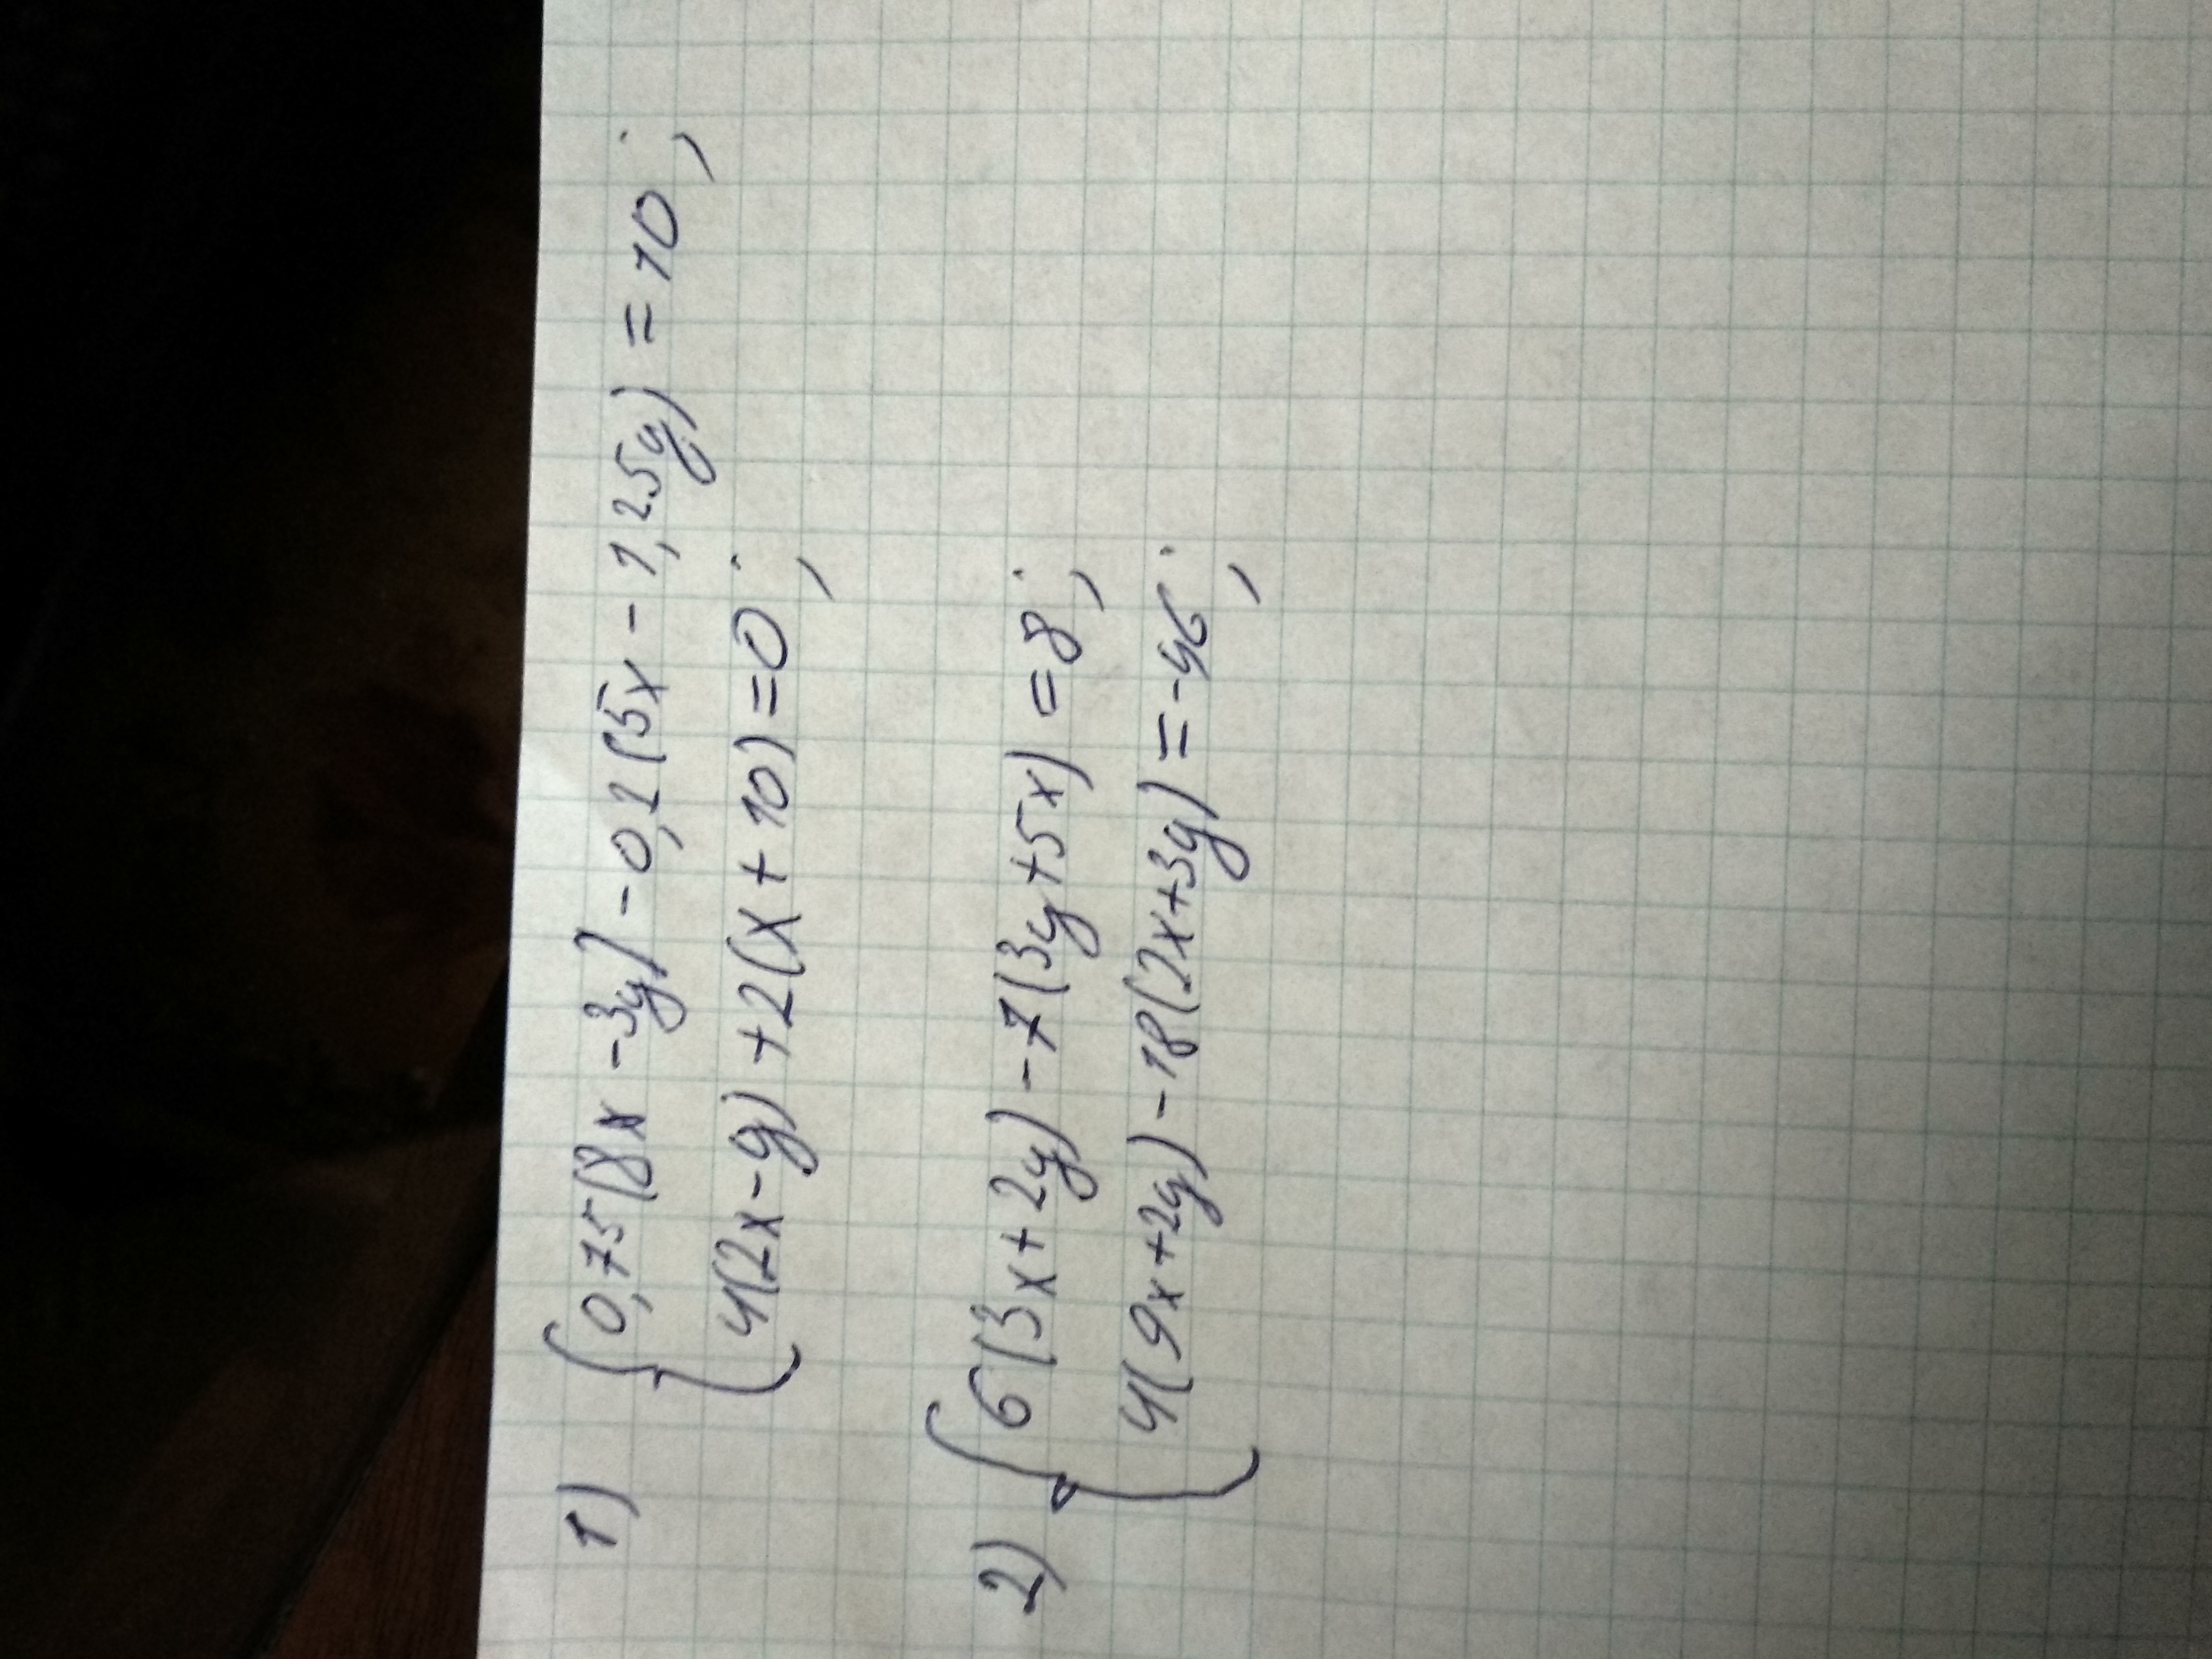 1) { 0,75(8x - 3y) - 0,2(5x - 1,25y) = 10;
4(2x - y) + 2(x + 10) = 0;
2) { 6(3x + 2y) - 7(3y + 5x) = 8;
4(9x + 2y) - 18(2x + 3y) = -46;